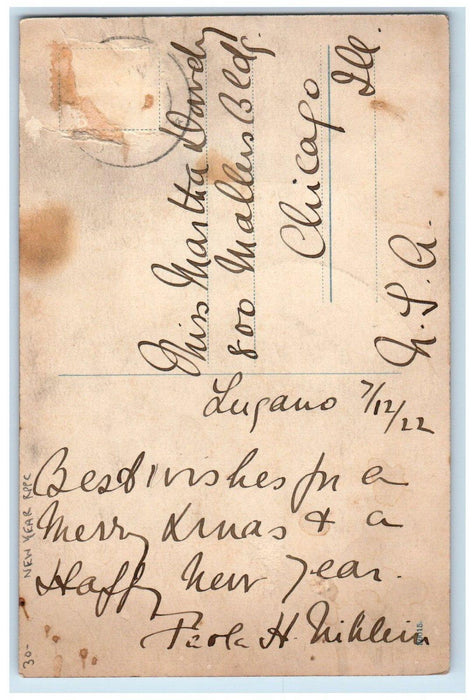 Miss Martha Dowdy
800 Mallers Bldg.
Chicago
Ill.
U. S. A.
Lugano 7/12/22
Best wishes for a
Merry Xmas & a
Happy New Year.
H.
NEW YEAR RPPC
30-